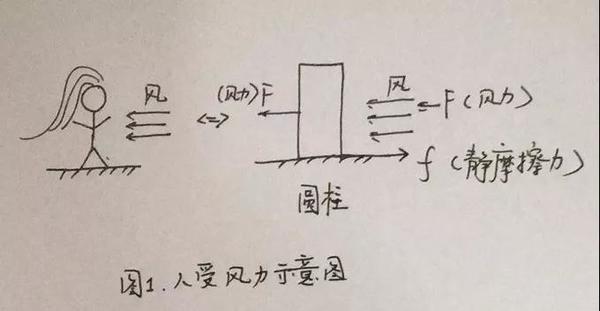 风
<=>
(风力)F
风
F(风力)
f(静摩擦力)
圆柱
图1.人受风力示意图